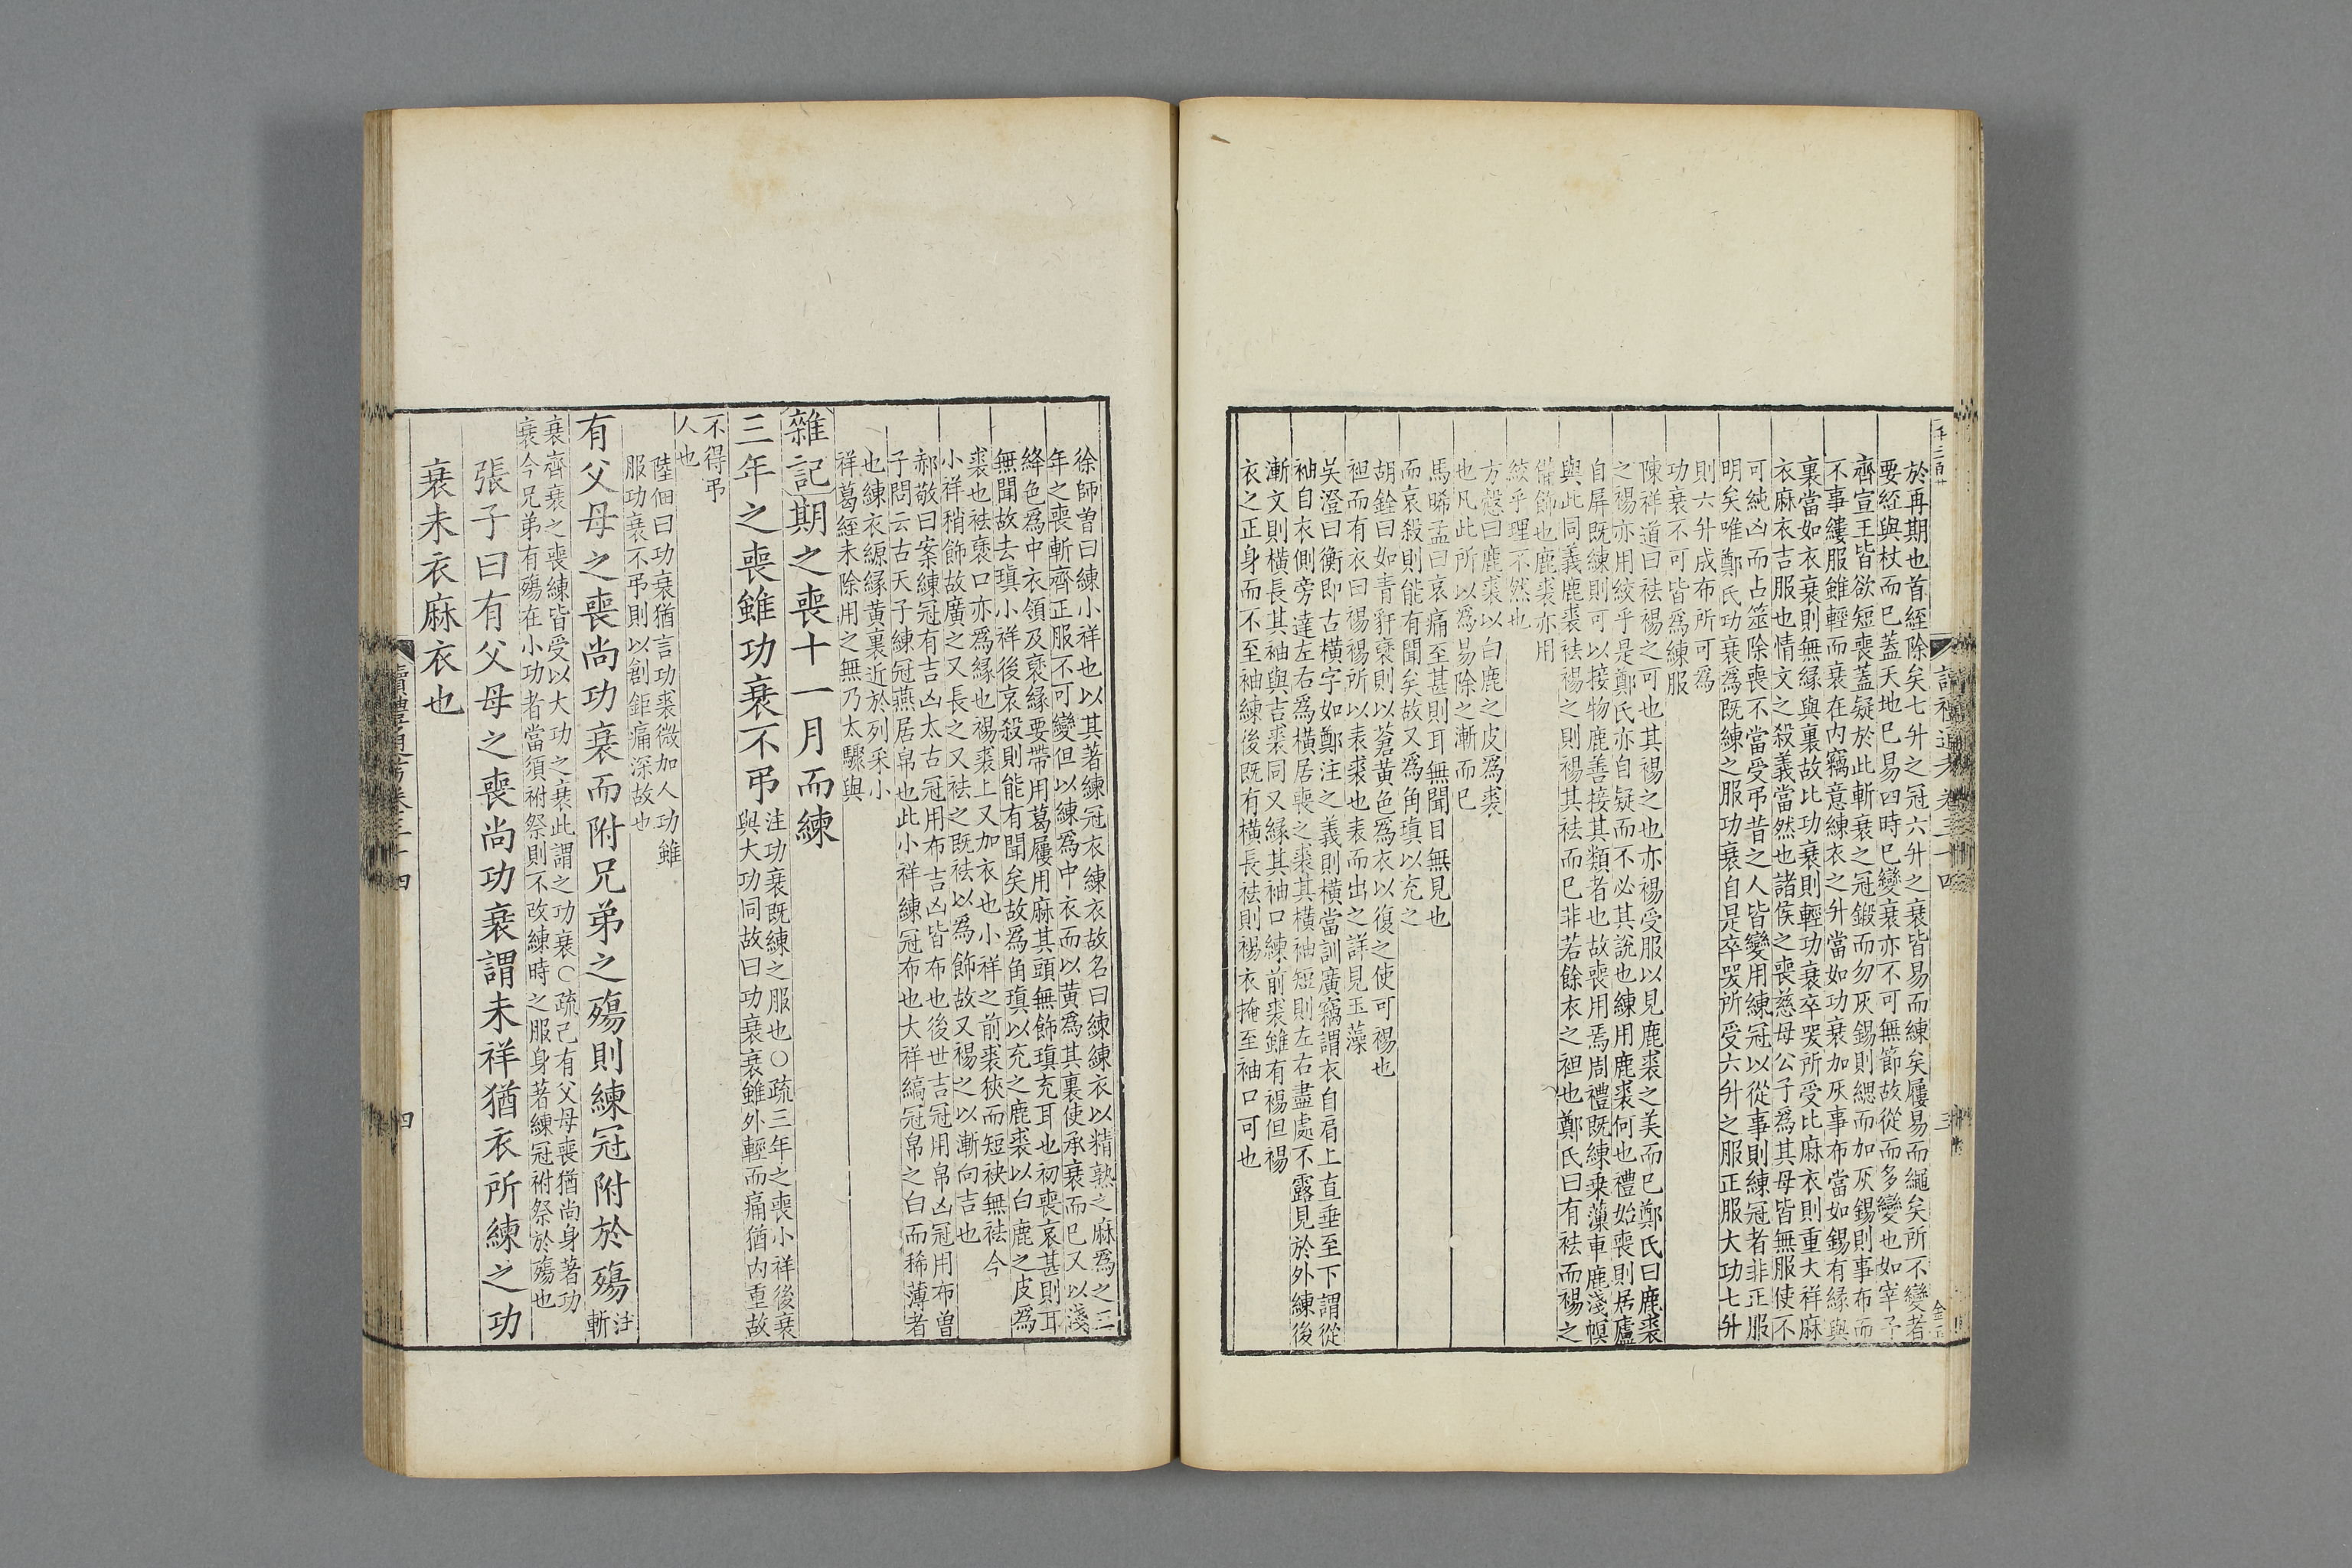 於再期也首絰除矣七升之冠六升之衰皆易而練矣屨易而繩矣所不變者
要絰與杖而已蓋天地已易四時已變衰亦不可無節故從而多變也如宰予
齊宣王皆欲短喪蓋疑於此斬衰之冠鍛而勿灰錫則緦而加灰錫則事布而
不事縷服雖輕而衰在内竊意練衣之升當如功衰加灰事布當如錫有緣與
裏當如衣衰則無緣與裏故比功衰則輕功衰卒哭所受比麻衣則重大祥麻
衣麻衣吉服也情文之殺義當然也諸侯之喪慈母公子爲其母皆無服使不
可純凶而占筮除喪不當受弔昔之人皆變用練冠以從事則練冠者非正服
明矣唯鄭氏功衰爲既練之服功衰自是卒哭所受六升之服正服大功七升
則六升成布所可爲
功衰不可皆爲練服
陳祥道曰袪裼之可也其裼之也亦裼受服以見鹿裘之美而已鄭氏曰鹿裘
之裼亦用絞乎是鄭氏亦自疑而不必其說也練用鹿裘何也禮始喪則居廬
自屏既練則可以接物鹿善接其類者也故喪用焉周禮既練乗藻車鹿淺幎
與此同義鹿裘袪裼之則裼其袪而已非若餘衣之袒也鄭氏曰有袪而裼之
備飾也鹿裘亦用
絞乎理不然也
方慤曰鹿裘以白鹿之皮爲裘
也凡此所以爲易除之漸而已
馬晞孟曰哀痛至甚則耳無聞目無見也
而哀殺則能有聞矣故又爲角瑱以充之
胡銓曰如青豻褎則以蒼黃色爲衣以復之使可裼也
袒而有衣曰裼裼所以表裘也表而出之詳見玉藻
吳澄曰衡即古橫字如鄭注之義則橫當訓廣竊謂衣自肩上直垂至下謂從
袖自衣側旁達左右爲橫居喪之裘其橫袖短則左右盡處不露見於外練後
漸文則橫長其袖與吉裘同又緣其袖口練前裘雖有裼但裼
衣之正身而不至袖練後既有橫長袪則裼衣掩至袖口可也
徐師曾曰練小祥也以其著練冠衣練衣故名曰練練衣以精熟之麻爲之三
年之喪斬齊正服不可變但以練爲中衣而以黄爲其裏使承衰而已又以淺
絳色爲中衣領及褎緣要帶用葛屨用麻其頭無飾瑱充耳也初喪哀甚則耳
無聞故去瑱小祥後哀殺則能有聞矣故爲角瑱以充之鹿裘以白鹿之皮爲
裘也袪褎口亦爲緣也裼裘上又加衣也小祥之前裘狹而短袂無袪今
小祥稍飾故廣之又長之又袪之既袪以爲飾故又裼之以漸向吉也
郝敬曰案練冠有吉凶太古冠用布吉凶皆布也後世吉冠用帛凶冠用布曾
子問云古天子練冠燕居帛也此小祥練冠布也大祥縞冠帛之白而稀薄者
也練衣縓緣黄裏近於列采小
祥葛絰未除用之無乃太驟與
雜記期之喪十一月而練
三年之喪雖功衰不弔
注功衰既練之服也○疏三年之喪小祥後衰
與大功同故曰功衰衰雖外輕而痛猶内重故
不得弔
人也
陸佃曰功衰猶言功裘微加人功雖
服功衰不弔則以創鉅痛深故也
有父母之喪尚功衰而附兄弟之殤則練冠附於殤
注
斬
衰齊衰之喪練皆受以大功之衰此謂之功衰○疏己有父母喪猶尚身著功
衰今兄弟有殤在小功者當須祔祭則不改練時之服身著練冠祔祭於殤也
張子曰有父母之喪尚功衰謂未祥猶衣所練之功
衰未衣麻衣也
讀禮通考卷三十四
四